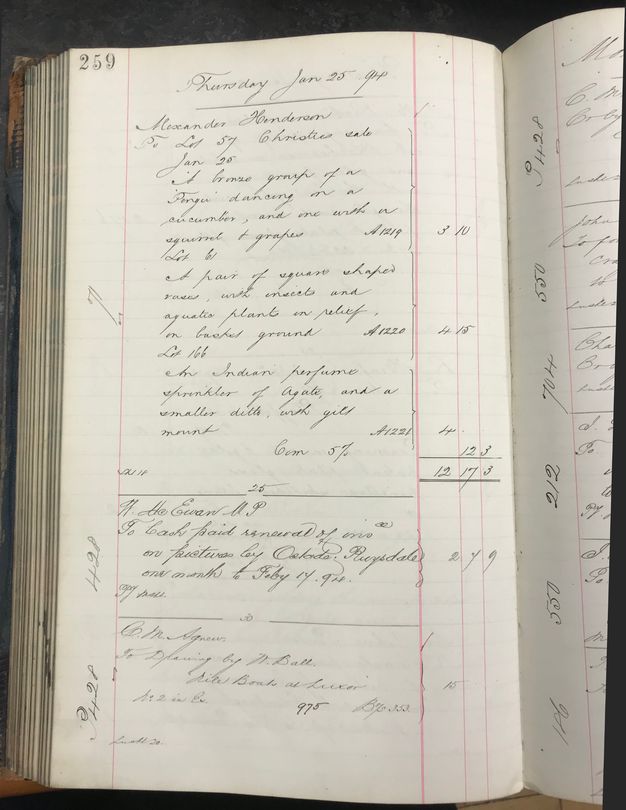 259
Thursday Jan 25 94
Alexander Henderson
To Lot 57 Christies sale
Jan 25
A bronze group of a
"Fongu" dancing on a
cucumber, and one with a
squirrel & grapes A1219 3 10
Lot 61
A pair of square shaped
vases, with insects and
aquatic plants in relief,
on basket ground A1220 4 15
Lot 166
An Indian perfume
sprinkler of Agate, and a
smaller ditto, with gilt
mount A1221 4
71
Com 5% 12 3
12 17 3
25
W. McEwan M P
To Cash paid renewal of insce
on pictures by Ostade, Ruysdale
one month to Feby 17. 94. 2 7 9
428
30
C. M. Agnew
To Drawing by W. Ball.
Nile Boats at Luxor 15
No 2 in Ex. 975 Bk 353
428
428
550
704
212
550
146
C. M
To